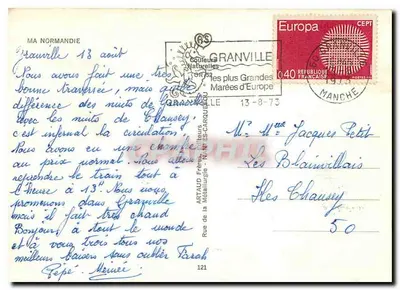 MA NORMANDIE
Granville 13 août
Nous avons fait une très
bonne traversée, mais quelle
différence des nuits de Granville
avec les nuits de Chausey.
c'est infernal la circulation!
Nous avons eu une chambre
au prix normal. Nous allons
reprendre le train tout à
l'heure à 13h. Nous nous
promenons dans Granville
mais il fait très chaud
Bonjour à tout le monde
et à vous trois tous nos
meilleurs baisers sans oublier Farah
Pépé - Mémée
ARTAUD Frères, Editeurs
Rue de la Métallurgie - NANTES-CARQUEFOU
121
6$
Couleurs
Naturelles
GRANVILLE
les plus Grandes
Marées d'Europe
GRANVILLE 13-8-73
Europa
CEPT
0,40
REPUBLIQUE
FRANCAISE
1973
MANCHE
M. et Mme Jacques Petit
Les Blainvillais
Iles Chausey
50